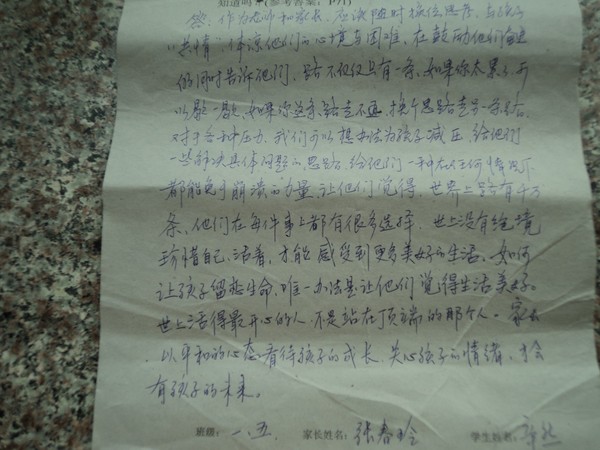 答：作为老师和家长，应该随时换位思考，与孩子
"共情"，体谅他们的心境与困难，在鼓励他们奋进
的同时告诉他们，路不仅仅只有一条，如果你太累了，可
以歇一歇，如果你这条路走不通，换个思路走另一条路。
对于各种压力，我们可以想办法为孩子减压，给他们
一些解决具体问题的思路，给他们一种在任何情况下
都能免于崩溃的力量，让他们觉得，世界上路有千万
条，他们在每件事上都有很多选择，世上没有绝境
珍惜自己，活着，才能感受到更多美好的生活。如何
让孩子留恋生命，唯一办法是让他们觉得生活美好。
世上活得最开心的人，不是站在顶端的那个人。家长
以平和的心态看待孩子的成长，关心孩子的情绪，才会
有孩子的未来。
班级：一.五. 家长姓名：张春玲 学生姓名：